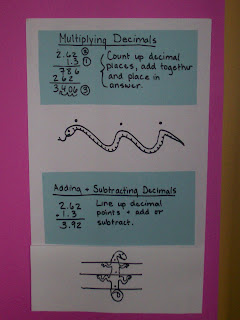 Multiplying Decimals
2.62 ②
1.3 ①
786
262
3.406 ③
Count up decimal
places, add together
and place in
answer.
Adding + Subtracting Decimals
2.62
+ 1.3
3.92
Line up decimal
points + add or
subtract.